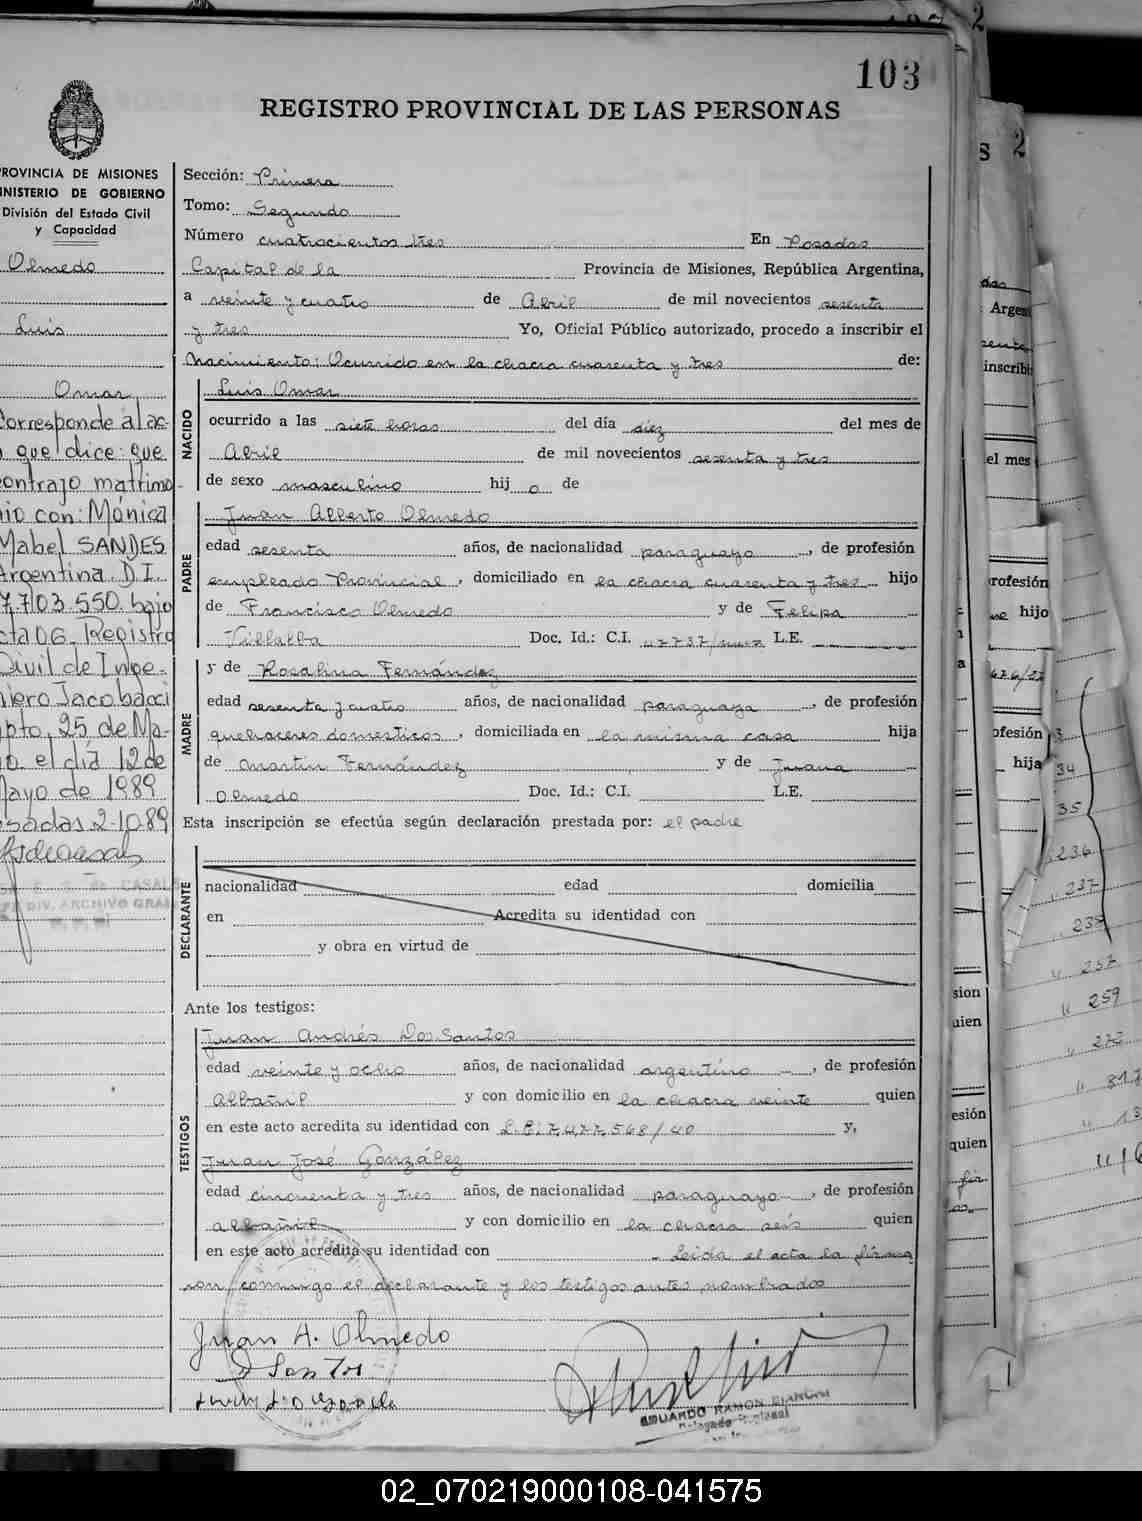 103
REGISTRO PROVINCIAL DE LAS PERSONAS
PROVINCIA DE MISIONES
MINISTERIO DE GOBIERNO
División del Estado Civil
y Capacidad
Olmedo
Luis
Omar
Corresponde al ac-
que dice: que
contrajo matrimo-
nio con: Mónica
Mabel SANDES
Argentina D.I.
7.703.550 bajo
acta 06 Registro
Civil de Inge-
niero Jacobacci
Dpto. 25 de Ma-
yo el día 12 de
Mayo de 1989
Posadas 2-10-89
DIV. ARCHIVO GRAL
Sección: Primera
Tomo: Segundo
Número cuatrocientos tres En Posadas
Capital de la Provincia de Misiones, República Argentina,
a veinte y cuatro de Abril de mil novecientos sesenta
y tres Yo, Oficial Público autorizado, procedo a inscribir el
Nacimiento: Ocurrido en la chacra cuarenta y tres de:
NACIDO
Luis Omar
ocurrido a las siete horas del día diez del mes de
Abril de mil novecientos sesenta y tres
de sexo masculino hij o de
Juan Alberto Olmedo
PADRE
edad sesenta años, de nacionalidad paraguayo, de profesión
empleado Provincial, domiciliado en la chacra cuarenta y tres hijo
de Francisco Olmedo y de Felipa
Villalba Doc. Id.: C.I. L.E.
y de Rosalina Fernández
MADRE
edad sesenta y cuatro años, de nacionalidad paraguaya, de profesión
quehaceres domesticos, domiciliada en la misma casa hija
de Martin Fernández y de Juana
Olmedo Doc. Id.: C.I. L.E.
Esta inscripción se efectúa según declaración prestada por: el padre
DECLARANTE
nacionalidad edad domicilia
en Acredita su identidad con
y obra en virtud de
Ante los testigos:
TESTIGOS
Juan Andrés Dos Santos
edad veinte y ocho años, de nacionalidad argentino, de profesión
albañil y con domicilio en la chacra veinte quien
en este acto acredita su identidad con L.E: 7,477,568/40 y,
Juan José González
edad cincuenta y tres años, de nacionalidad paraguayo, de profesión
albañil y con domicilio en la chacra seis quien
en este acto acredita su identidad con - Leida el acta la firma
ron conmigo el declarante y los testigos antes nombrados
Juan A. Olmedo
EDUARDO RAMON BIANCHI
Delegado Regional
02_070219000108-041575